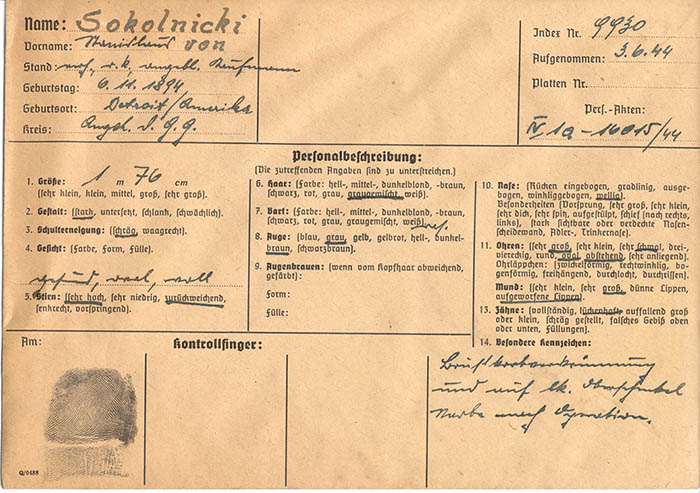 Name: Sokolnicki
Vorname: Stanislaus von
Stand: verh., r.k. angebl. Kaufmann
Geburtstag: 6.11.1894
Geburtsort: Detroit/Amerika
Kreis: Angeh. d. G.G.
Index Nr. 9930
Aufgenommen: 3.6.44
Platten Nr.
Pers.-Akten:
IV 1a-16015/44
Personalbeschreibung:
(Die zutreffenden Angaben sind zu unterstreichen.)
1. Größe: 1 m 76 cm
(sehr klein, klein, mittel, groß, sehr groß).
2. Gestalt: (stark, untersetzt, schlank, schwächlich).
3. Schulterneigung: (schräg, waagrecht).
4. Gesicht: (Farbe, Form, Fülle).
gesund, oval, voll
5. Stirn: (sehr hoch, sehr niedrig, zurückweichend,
senkrecht, vorspringend).
6. Haar: (Farbe: hell-, mittel-, dunkelblond, -braun,
schwarz, rot, grau, graugemischt, weiß).
7. Bart: (Farbe: hell-, mittel-, dunkelblond, -braun,
schwarz, rot, grau, graugemischt, weiß)
8. Auge: (blau, grau, gelb, gelbrot, hell-, dunkel-
braun, schwarzbraun).
9. Augenbrauen: (wenn vom Kopfhaar abweichend,
gefärbt):
Form:
Fülle:
10. Nase: (Rücken eingebogen, gradlinig, ausge-
bogen, winkliggebogen, wellig).
Besonderheiten (Vorsprung, sehr groß, sehr klein,
sehr dick, sehr spitz, aufgestülpt, schief (nach rechts,
links), stark sichtbare oder verdeckte Nasen-
scheidewand, Adler-, Trinkernase).
11. Ohren: (sehr groß, sehr klein, sehr schmal, drei-
viereckig, rund, oval, abstehend, sehr anliegend).
Ohrläppchen: (zwickelförmig, rechtwinklig, bo-
genförmig, freihängend, durchlocht, durchrissen).
Mund: (sehr klein, sehr groß, dünne Lippen,
aufgeworfene Lippen).
13. Zähne: (vollständig, lückenhaft, auffallend groß
oder klein, schräg gestellt, falsches Gebiß oben
oder unten, Füllungen).
14. Besondere Kennzeichen:
Brustkorbverkrümmung
und auf lk. Oberschenkel
Narbe nach Operation.
Am:
Kontrollfinger:
Q/0488